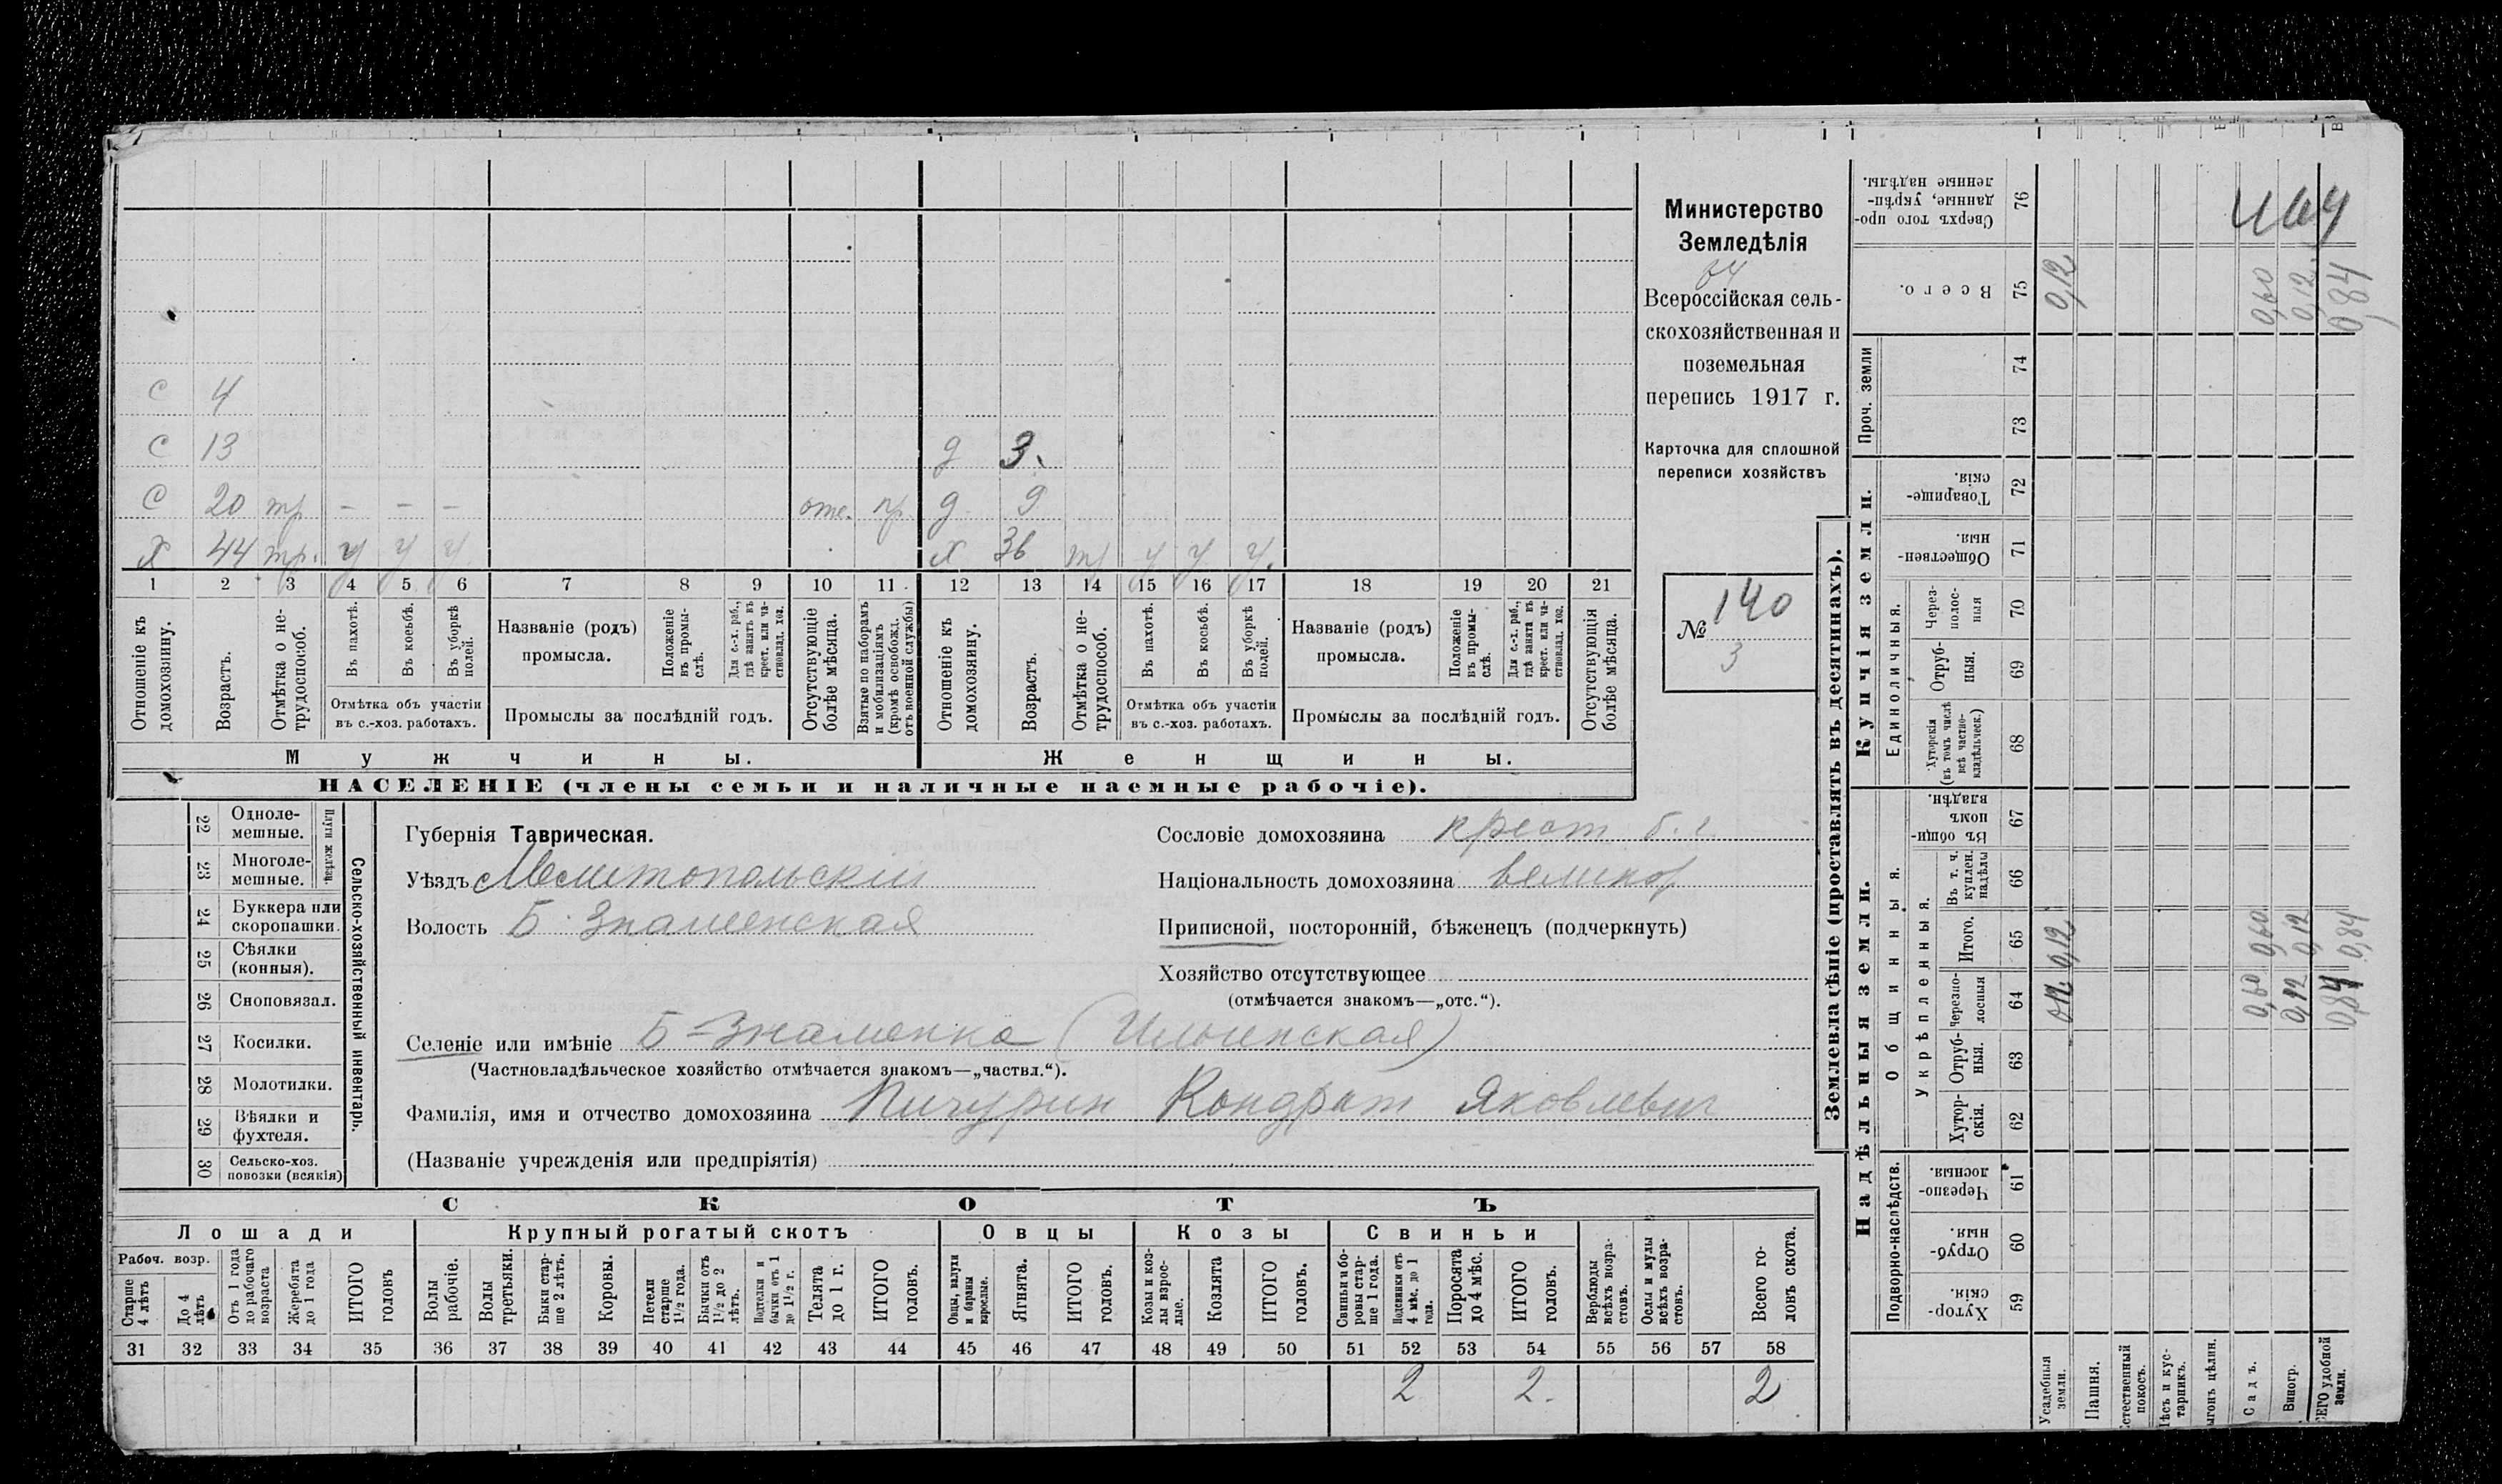 С 4
С 13
д 3
С 20 тр - - - отс. пр. д 9
Х 44 тр. у у у х 36 тр у у у
1 2 3 4 5 6 7 8 9 10 11 12 13 14 15 16 17 18 19 20 21
Отношеніе къ домохозяину.
Возрастъ.
Отмѣтка о нетрудоспособ.
Въ пахотѣ.
Въ косьбѣ.
Въ уборкѣ полей.
Отмѣтка объ участіи
въ с.-хоз. работахъ.
Названіе (родъ)
промысла.
Положеніе въ промыслѣ.
Для с.-х. раб., гдѣ занятъ въ крест. или частновлад. хоз.
Промыслы за послѣдній годъ.
Отсутствующіе болѣе мѣсяца.
Взятые по наборамъ и мобилизаціямъ (кромѣ освобожд. отъ военной службы)
Отношеніе къ домохозяину.
Возрастъ.
Отмѣтка о нетрудоспособ.
Въ пахотѣ.
Въ косьбѣ.
Въ уборкѣ полей.
Отмѣтка объ участіи
въ с.-хоз. работахъ.
Названіе (родъ)
промысла.
Положеніе въ промыслѣ.
Для с.-х. раб., гдѣ занята въ крест. или частновлад. хоз.
Промыслы за послѣдній годъ.
Отсутствующія болѣе мѣсяца.
Мужчины.
Женщины.
НАСЕЛЕНІЕ (члены семьи и наличные наемные рабочіе).
Министерство
Земледѣлія
Всероссійская сель-
скохозяйственная и
поземельная
перепись 1917 г.
Карточка для сплошной
переписи хозяйствъ
№ 140
3
22 Однолемешные.
23 Многолемешные.
Плуги желѣзн.
24 Буккера или скоропашки.
25 Сѣялки (конныя).
26 Сноповязал.
27 Косилки.
28 Молотилки.
29 Вѣялки и фухтеля.
30 Сельско-хоз. повозки (всякія)
Сельско-хозяйственный инвентарь.
Губернія Таврическая.
Уѣздъ Мелитопольскій
Волость Б. Знаменская
Сословіе домохозяина крест б.г.
Національность домохозяина великор
Приписной, посторонній, бѣженецъ (подчеркнуть)
Хозяйство отсутствующее
(отмѣчается знакомъ—„отс.“).
Селеніе или имѣніе Б-Знаменка (Ильинская)
(Частновладѣльческое хозяйство отмѣчается знакомъ—„частвл.“).
Фамилія, имя и отчество домохозяина Пичурин Кондрат Яковлевич
(Названіе учрежденія или предпріятія)
СКОТЪ
Лошади
Крупный рогатый скотъ
Овцы
Козы
Свиньи
Рабоч. возр.
Старше 4 лѣтъ
До 4 лѣтъ
Отъ 1 года до рабочаго возраста
Жеребята до 1 года
ИТОГО головъ
Волы рабочіе.
Волы третьяки.
Быки старше 2 лѣтъ.
Коровы.
Нетели старше 1 1/2 года.
Бычки отъ 1 1/2 до 2 лѣтъ.
Подтелки и бычки отъ 1 до 1 1/2 г.
Телята до 1 г.
ИТОГО головъ.
Овцы, валухи и бараны взрослые.
Ягнята.
ИТОГО головъ.
Козы и козлы взрослые.
Козлята
ИТОГО головъ.
Свиньи и боровы старше 1 года.
Подсвинки отъ 4 мѣс. до 1 года.
Поросята до 4 мѣс.
ИТОГО головъ.
Верблюды всѣхъ возрастовъ.
Ослы и мулы всѣхъ возрастовъ.
Всего головъ скота.
31 32 33 34 35 36 37 38 39 40 41 42 43 44 45 46 47 48 49 50 51 52 53 54 55 56 57 58
2 2. 2
Землевладѣніе (проставлять въ десятинахъ).
Надѣльныя земли.
Купчія земли.
Проч. земли
Подворно-наслѣдств.
Общинныя.
Укрѣпленныя.
Единоличныя.
Хуторскія. 59
Отрубныя. 60
Черезполосныя 61
Хуторскія. 62
Отрубныя. 63
Черезполосныя 64
Итого. 65
Въ т. ч. куплен. надѣлы 66
Въ общинномъ владѣн. 67
Хуторскія (въ томъ числѣ всѣ частновладѣльческ.) 68
Отрубныя. 69
Черезполосныя 70
Общественныя. 71
Товарищескія. 72
73
74
Всего. 75
Сверхъ того проданные, укрѣпленные надѣлы. 76
Усадебныя земли. 0,12 0,12 0,12
Пашня.
Естественный покосъ.
Лѣсъ и кустарникъ.
Выгонъ цѣлин.
Садъ. 0,60 0,60 0,60
Виногр. 0,12 0,12 0,12
ВСЕГО удобной земли. 0,84 0,84 0,84